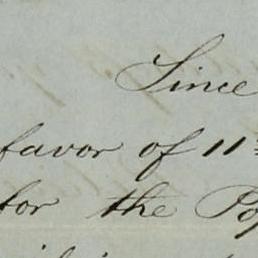 Since
favor of 11th
for the Po